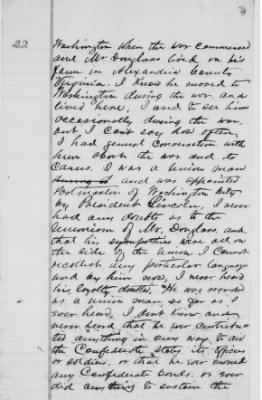 22
Washington when the war commenced
and Mr Douglass lived on his
farm in Alexandria County
Virginia. I know he moved to
Washington during the war and
lived here, I used to see him
occasionally during the war,
but I can't say how often,
I had general conversation with
him about the war and its
causes. I was a Union man
and was appointed
Postmaster of Washington City
by President Lincoln, I never
had any doubts as to the
Unionism of Mr. Douglass, and
that his sympathies were all on
the side of the Union. I cannot
recollect any particular language
used by him now, I never heard
his loyalty doubted, He was regarded
as a Union man so far as I
ever heard, I don't know and
never heard that he ever contribu-
ted anything in any way to aid
the Confederate States, its officers
or soldiers, or that he ever owned
any Confederate bonds, or ever
did anything to sustain the